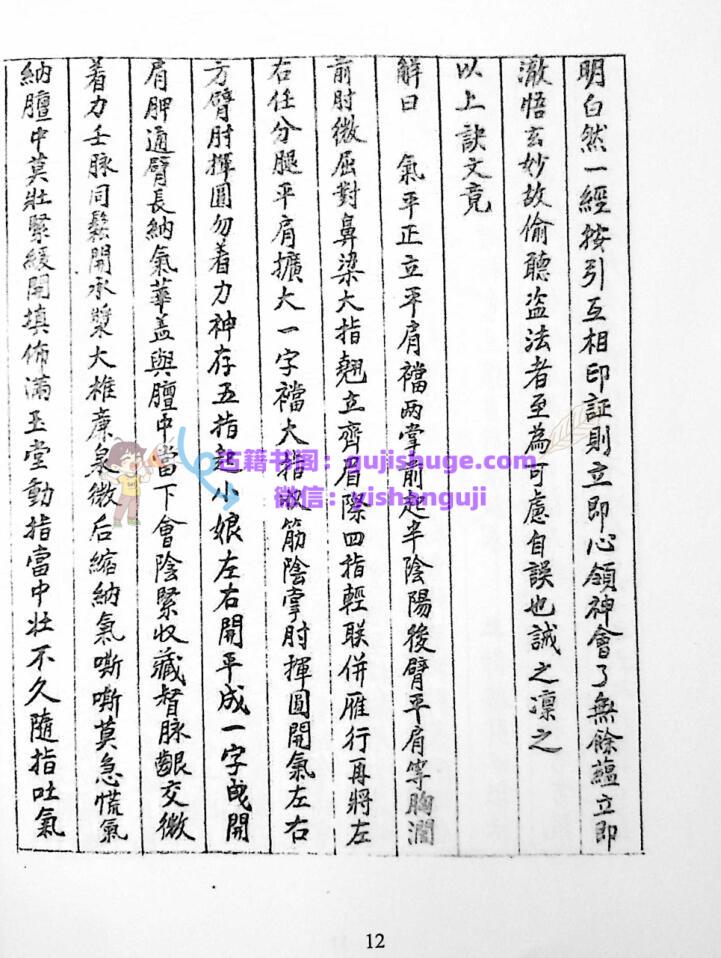 明白然一經按引互相印証則立即心領神會了無餘蘊立即
澈悟玄妙故偷聽盜法者至為可慮自誤也誡之凛之
以上訣文竟
解曰 氣平正立平肩襠兩掌前起半陰陽後臂平肩等胸濶
前肘微屈對鼻梁大指翹立齊眉際四指輕联併雁行再將左
右任分腿平肩擴大一字襠大指領筋陰掌肘揮圓開氣左右
方臂肘揮圓勿着力神存五指起小娘左右開平成一字曳開
肩胛通臂長納氣華盖與膻中當下會陰緊收藏督脉齦交微
着力壬脉同鬆開承漿大椎廉泉微后縮納氣嘶嘶莫急慌氣
納膻中莫壯緊緩開填佈滿玉堂動指當中壮不久隨指吐氣
古籍书阁：gujishuge.com
微信：yishanguji
12